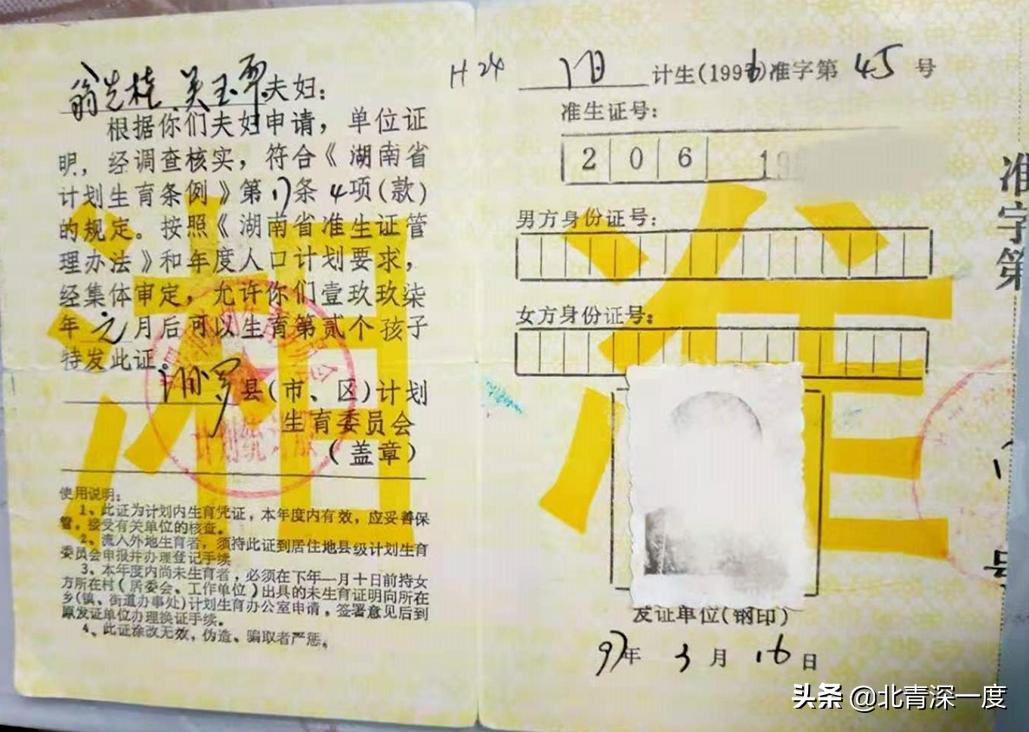 翁先桂 吴玉翠夫妇：
根据你们夫妇申请，单位证
明，经调查核实，符合《湖南省
计划生育条例》第17条4项(款)
的规定。按照《湖南省准生证管
理办法》和年度人口计划要求，
经集体审定，允许你们壹玖玖柒
年元月后可以生育第贰个孩子
特发此证。
汨罗县(市、区)计划
生育委员会
(盖章)
使用说明：
1、此证为计划内生育凭证，本年度内有效，应妥善保
管，接受有关单位的核查。
2、流入外地生育者，须持此证到居住地县级计划生育
委员会申报并办理登记手续
3、本年度内尚未生育者，必须在下年一月十日前持女
方所在村(居委会、工作单位)出具的未生育证明向所在
乡(镇、街道办事处)计划生育办公室申请，签署意见后到
原发证单位办理换证手续。
4、此证涂改无效，伪造、骗取者严惩。
H24
汨 计生(199)准字第 45 号
准生证号：
206 19
男方身份证号：
女方身份证号：
发证单位(钢印)
97年3月16日
湘准
准字第
号
头条 @北青深一度